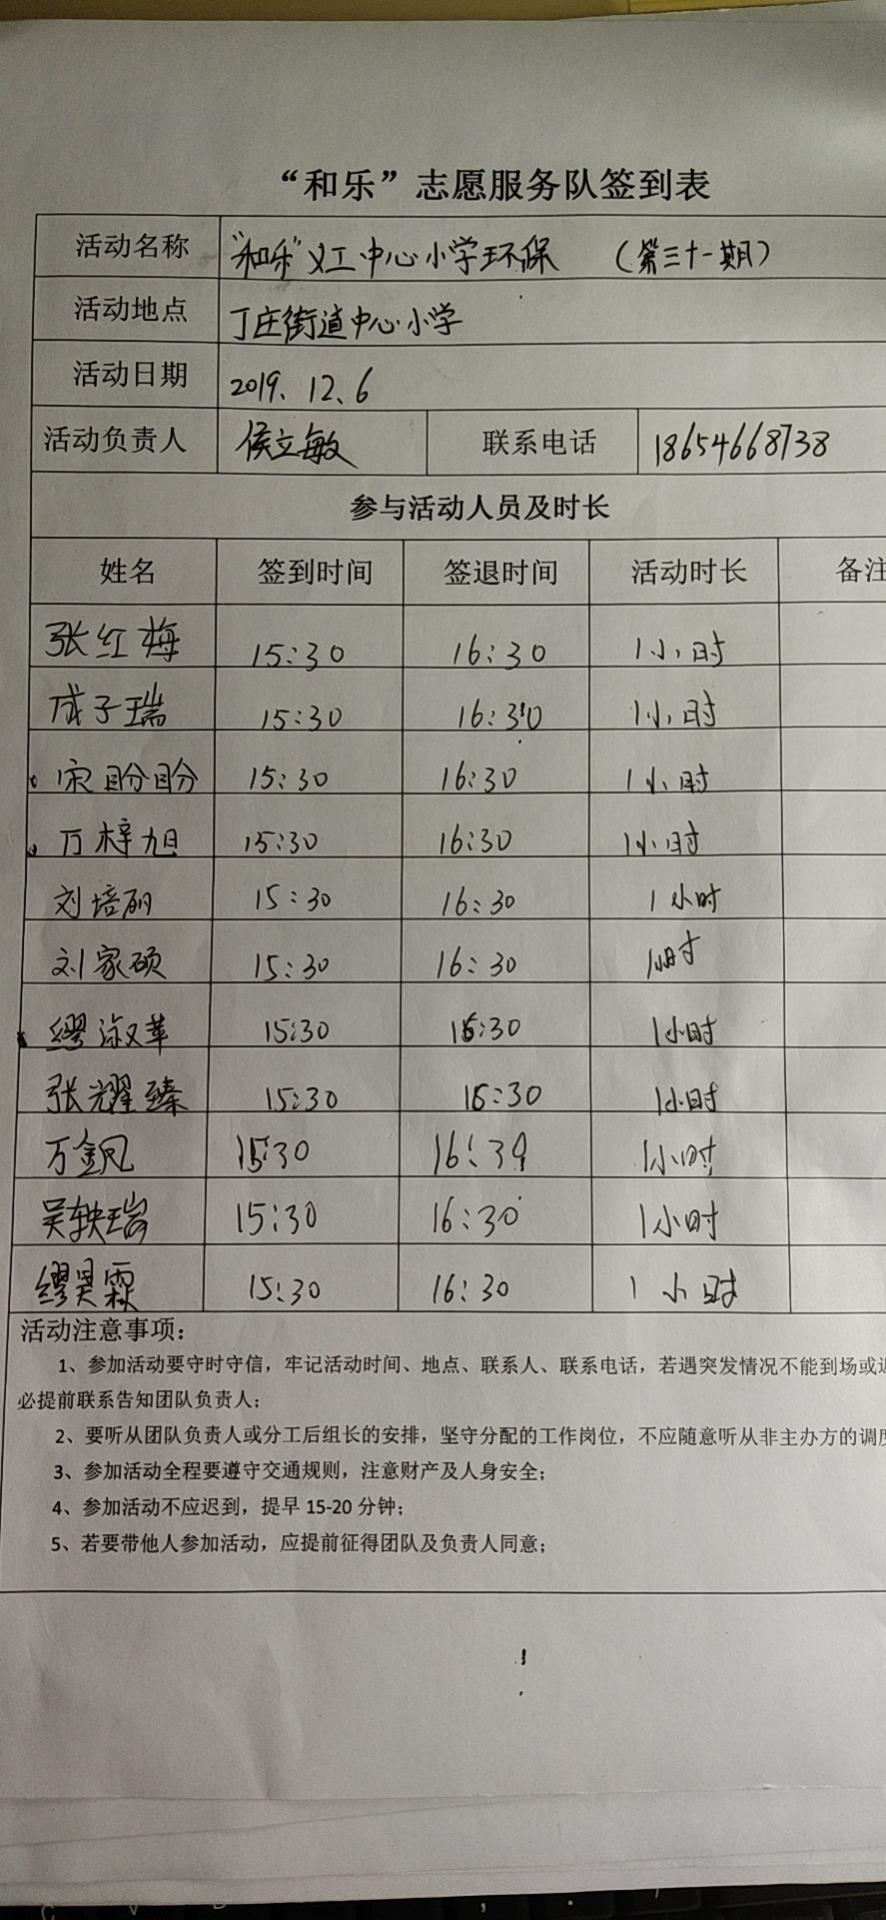 “和乐”志愿服务队签到表
活动名称 “和乐”义工中心小学环保 （第三十一期）
活动地点 丁庄街道中心小学
活动日期 2019、12、6
活动负责人 侯立敏 联系电话 18654668738
参与活动人员及时长
姓名 签到时间 签退时间 活动时长 备注
张红梅 15:30 16:30 1小时
成子瑞 15:30 16:30 1小时
宋盼盼 15:30 16:30 1小时
万梓旭 15:30 16:30 1小时
刘培 15:30 16:30 1小时
刘家硕 15:30 16:30 1小时
缪淑苹 15:30 16:30 1小时
张耀臻 15:30 16:30 1小时
万金凤 15:30 16:39 1小时
吴轶瑞 15:30 16:30 1小时
缪昊霖 15:30 16:30 1小时
活动注意事项：
1、参加活动要守时守信，牢记活动时间、地点、联系人、联系电话，若遇突发情况不能到场或
必提前联系告知团队负责人；
2、要听从团队负责人或分工后组长的安排，坚守分配的工作岗位，不应随意听从非主办方的调度
3、参加活动全程要遵守交通规则，注意财产及人身安全；
4、参加活动不应迟到，提早 15-20 分钟；
5、若要带他人参加活动，应提前征得团队及负责人同意；